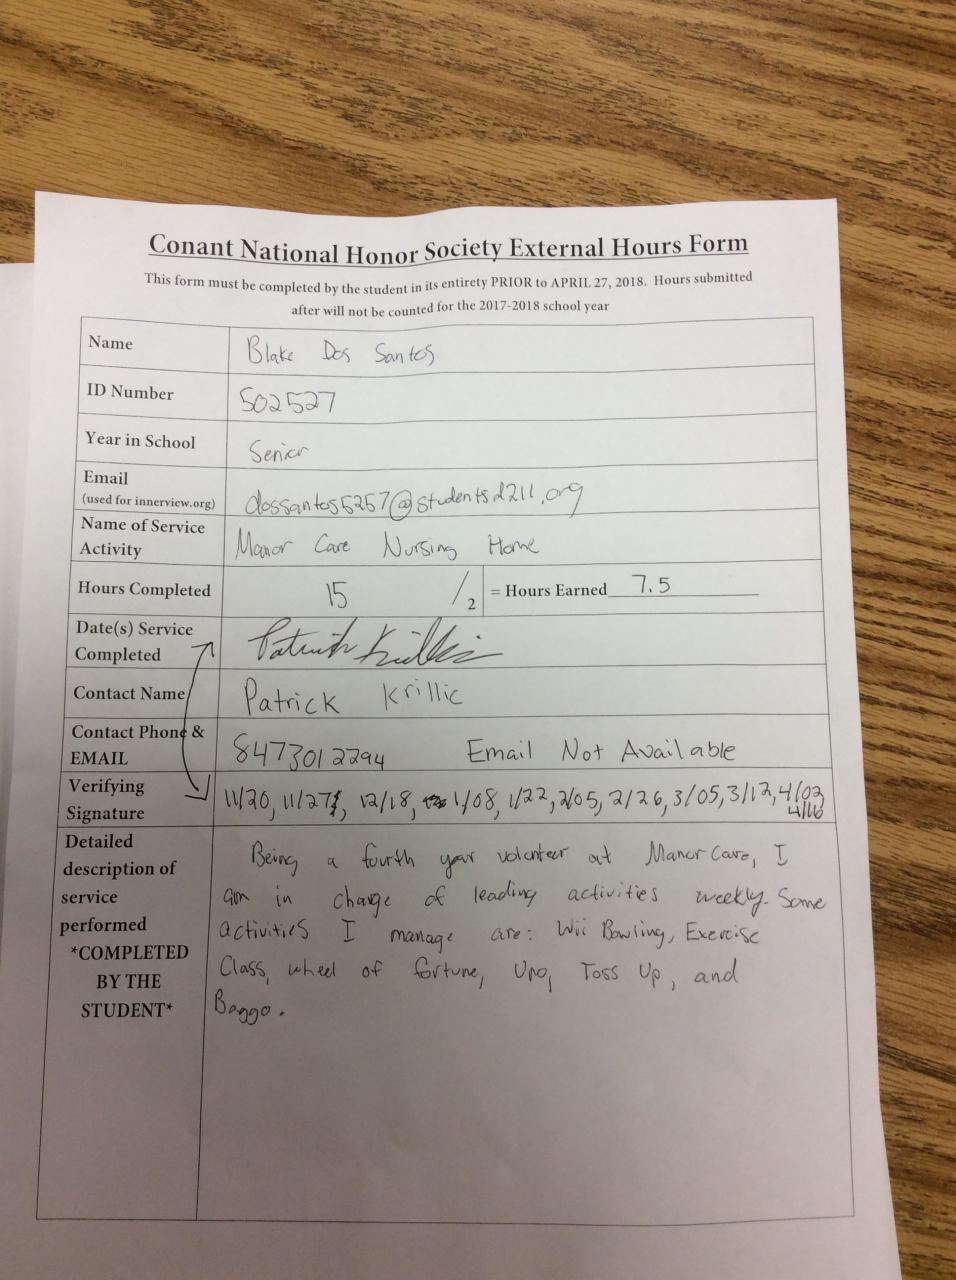 Conant National Honor Society External Hours Form
This form must be completed by the student in its entirety PRIOR to APRIL 27, 2018. Hours submitted
after will not be counted for the 2017-2018 school year
Name Blake Dos Santos
ID Number 502527
Year in School Senior
Email
(used for innerview.org) dossantos5257@students.d211.org
Name of Service
Activity Manor Care Nursing Home
Hours Completed 15 /2 = Hours Earned 7.5
Date(s) Service
Completed Patrick Krillic
Contact Name Patrick Krillic
Contact Phone &
EMAIL 8473012294 Email Not Available
Verifying
Signature 11/20, 11/27, 12/18, 1/08, 1/22, 2/05, 2/26, 3/05, 3/12, 4/02
4/16
Detailed
description of
service
performed
*COMPLETED
BY THE
STUDENT*
Being a fourth year volunteer at Manor Care, I
am in charge of leading activities weekly. Some
activities I manage are: Wii Bowling, Exercise
Class, wheel of fortune, Uno, Toss Up, and
Baggo.